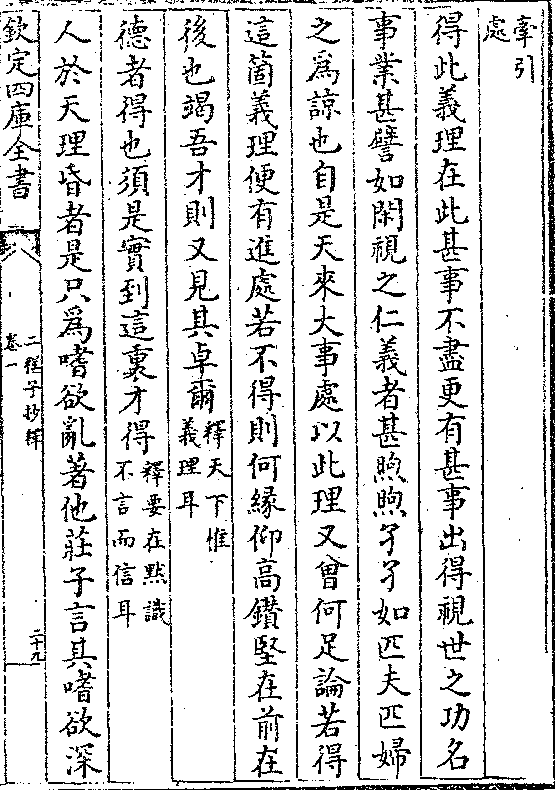 牽引
處
得此義理在此甚事不盡更有甚事出得視世之功名
事業甚譬如閑視之仁義者甚煦煦孑孑如匹夫匹婦
之爲諒也自是天來大事處以此理又曾何足論若得
這箇義理便有進處若不得則何緣仰高鑽堅在前在
後也竭吾才則又見其卓爾釋天下惟
義理耳
德者得也須是實到這裏才得釋要在黙識
不言而信耳
人於天理昏者是只爲嗜欲亂著他莊子言其嗜欲深
欽定四庫全書
二程子抄釋
卷一
二十九